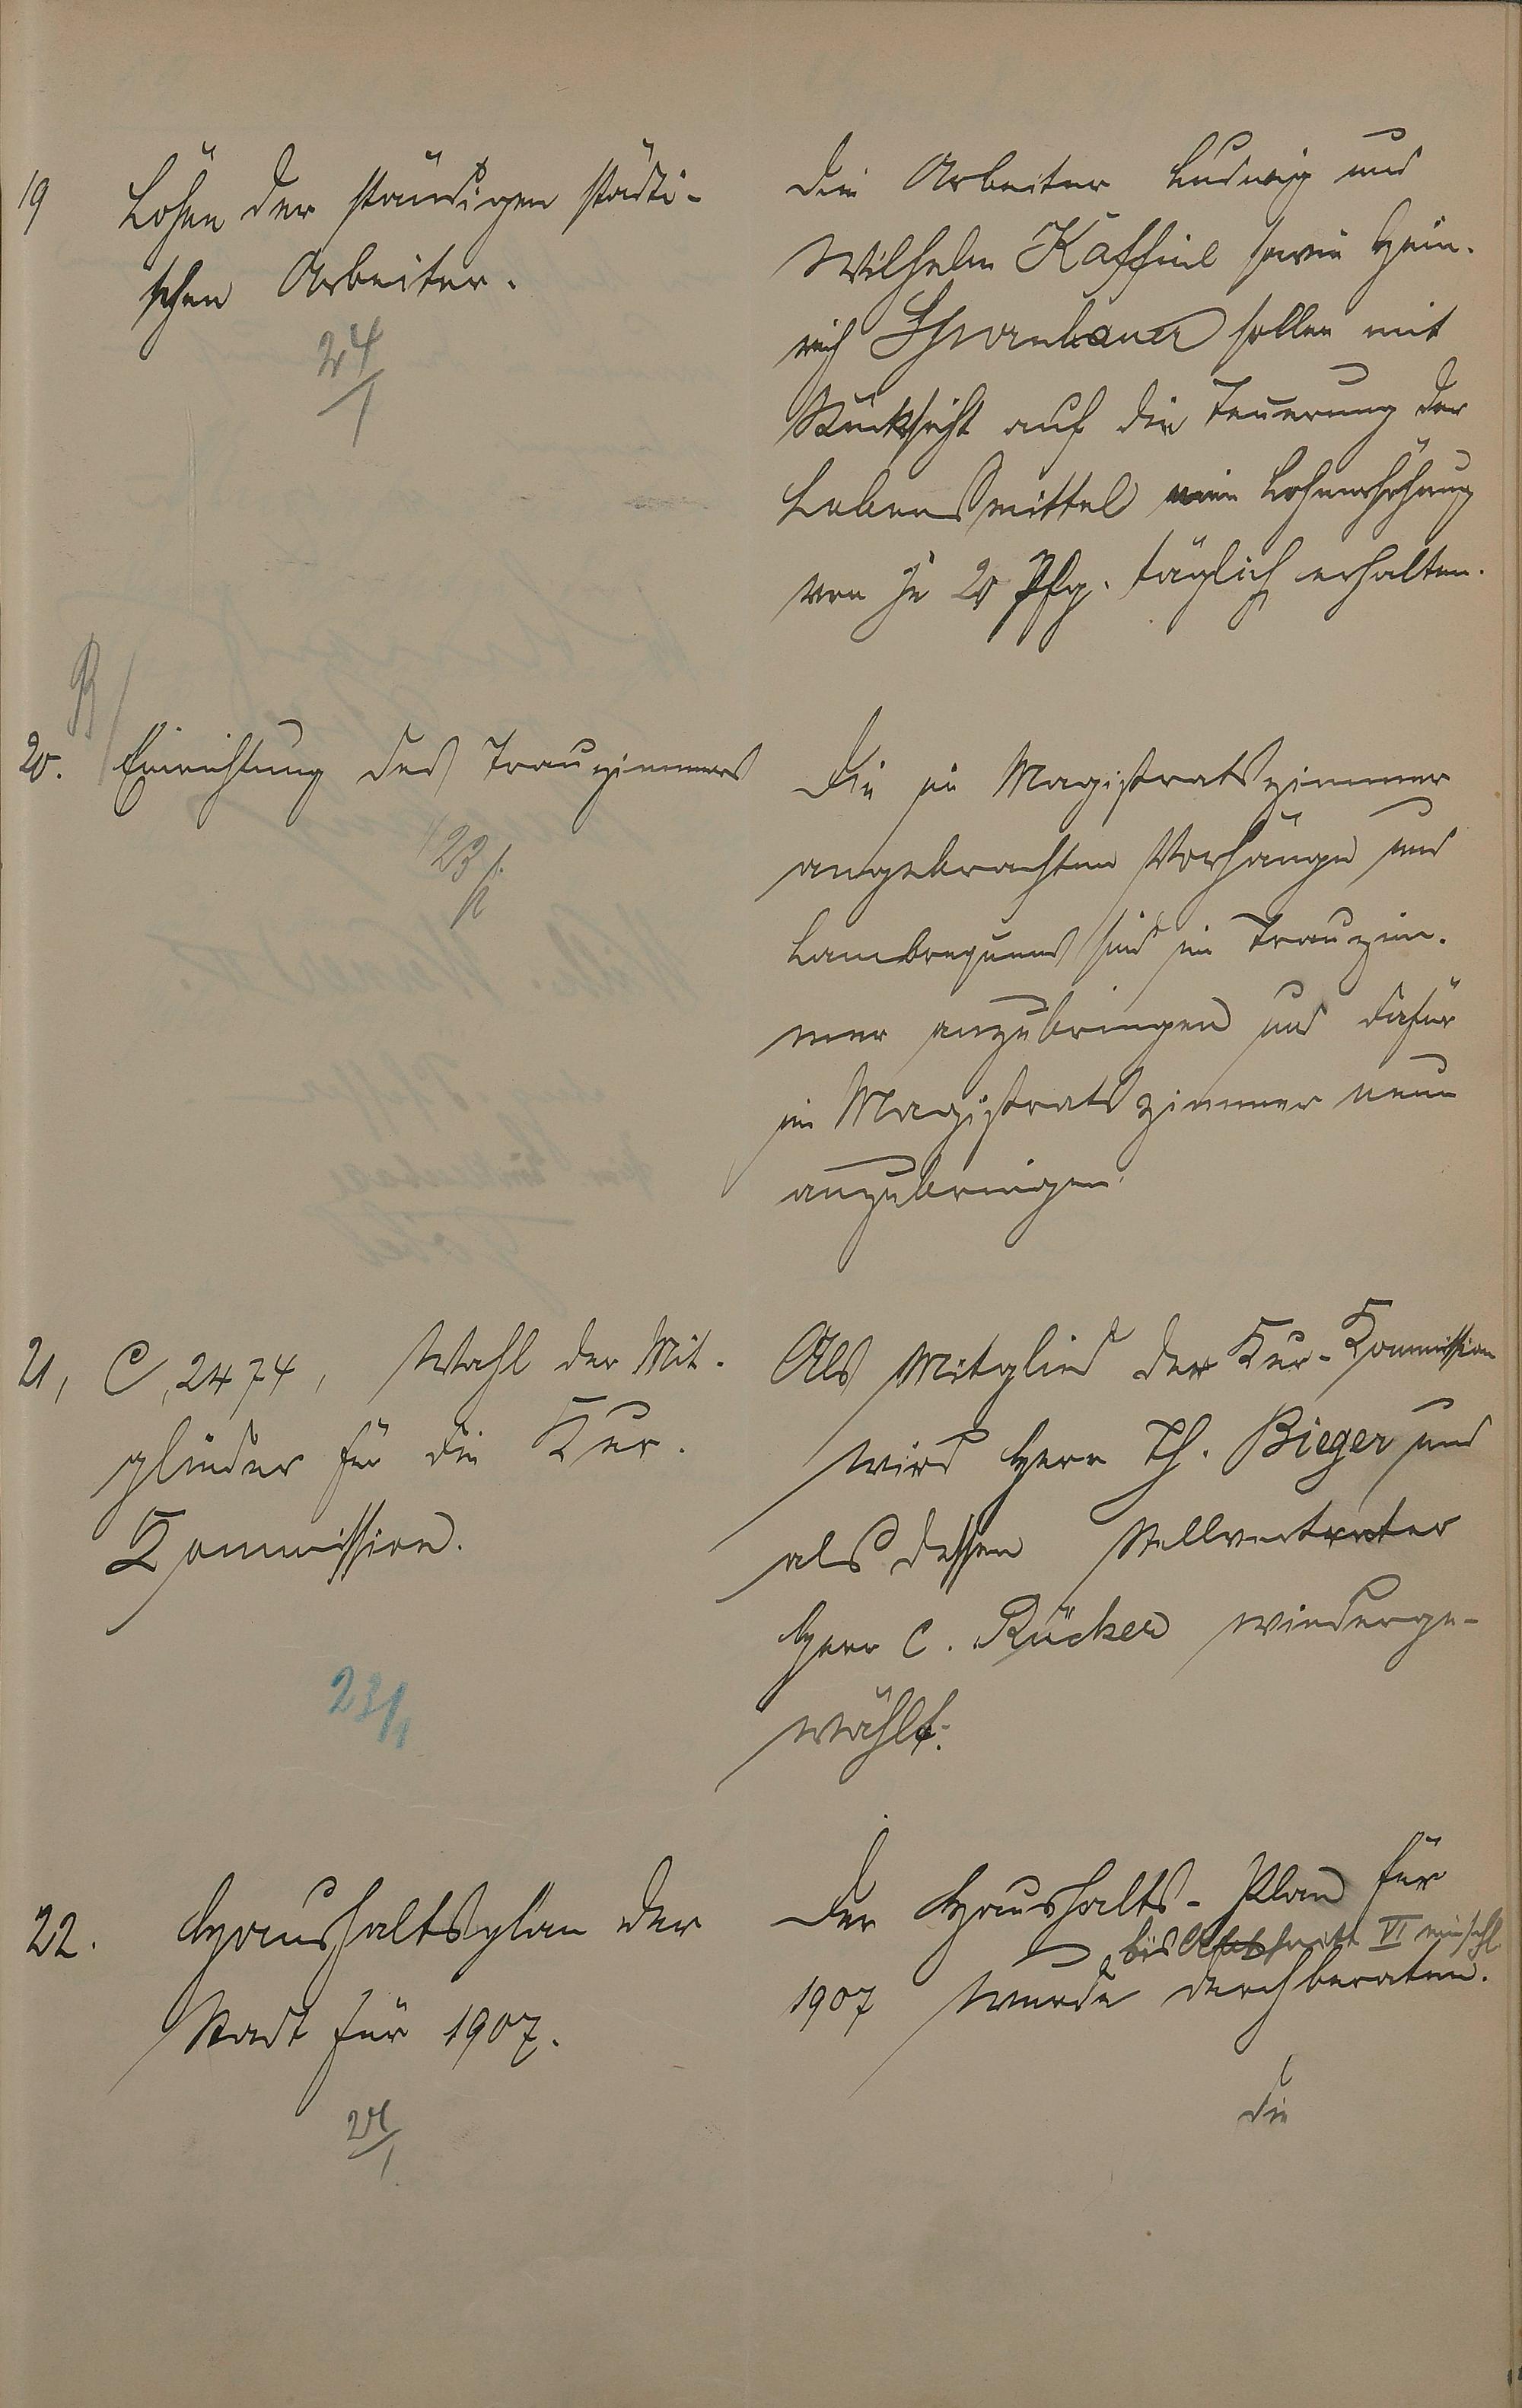 19 Löhne der ständigen städti-
schen Arbeiter.
24/1
Die Arbeiter Ludwig und
Wilhelm Käffiel sowie Hein-
rich Schranbauer sollen mit
Rücksicht auf die Teuerung der
Lebensmittel eine Lohnerhöhung
von je 20 Pfg. täglich erhalten.
20. Einrichtung des Trauzimmers
23/1.
Die im Magistratszimmer
angebrachten Vorhänge und
Lambrequins sind im Trauzim-
mer anzubringen und dafür
im Magistratszimmer neue
anzubringen.
21, C, 2474, Wahl der Mit-
glieder für die Kur-
Kommission.
23/1
Als Mitglied der Kur-Kommission
wird Herr Th. Bieger und
als dessen Stellvertreter
Herr C. Rücker wiederge-
wählt.
22. Haushaltsplan der
Stadt für 1907.
24/1
Der Haushalts-Plan für
bis Abschnitt VI einschl
1907 wurde durchberaten.
Die